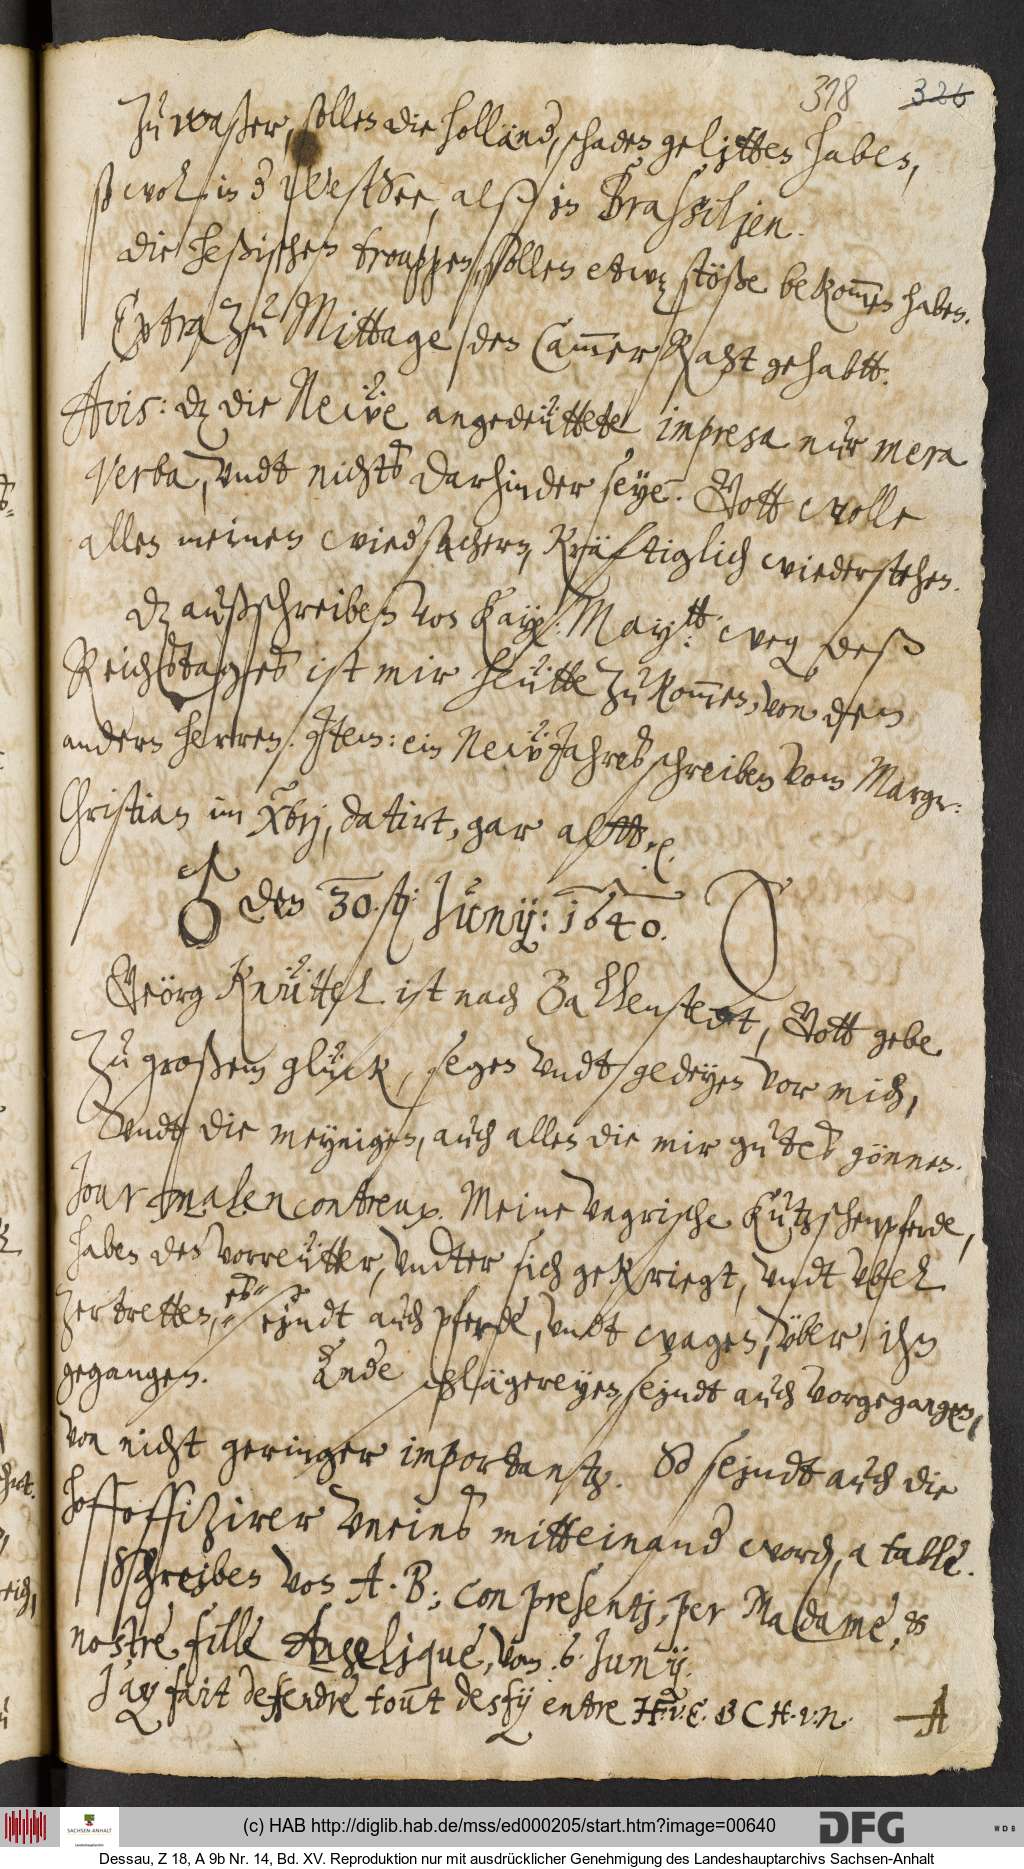 318 326
Zu waßer, sollen die Holländ, schaden gelitten haben,
so wol in d WestSee, alß in Brassiljen.
die heßischen trouppen, sollen etwz stöße bekommen haben.
Extra zu Mittage, den CammerRaht gehabtt.
Avis: dz die Neẅe angedeüttete impresa nur mera
verba, undt nichts darhinder seye. Gott wolle
allen meinen wiedsachern, kräftiglich wiederstehen.
Dz außschreiben von Kay: May:tt weg deß
Reichstages ist mir heütte zukommen, von den
andern herren. Jtem: ein NeẅJahresschreiben vom Marggr:
Christian im Xbrj, datirt, gar altt. 
♂ den 30. st: Junij: 1640.
Geörg Knüttel ist nach Ballenstedt, Gott gebe
zu großem glück, segen undt gedeyen vor mich,
undt die meynigen, auch allen die mir gutes gönnen.
Jour malencontreux. Meine Ungrische Kutzschenpferde,
haben den vorreütter, undter sich gekriegt, undt vbel
zertretten, es seindt auch pferde, undt wagen, über ihn
gegangen. Ende schlägereyen, seindt auch vorgegangen,
von nicht geringer importantz. So seindt auch die
hoffoffizirer uneins mitteinand word, a table.
Schreiben von A. B.; con presentj, per Madame, &
nostre fille Angelique, vom .6. Junij.
J'ay fait defendre tout desfij entre H.v.E. & C H.v.N.
(c) HAB http://diglib.hab.de/mss/ed000205/start.htm?image=00640
SACHSEN-ANHALT
DFG
WDB
Dessau, Z 18, A 9b Nr. 14, Bd. XV. Reproduktion nur mit ausdrücklicher Genehmigung des Landeshauptarchivs Sachsen-Anhalt